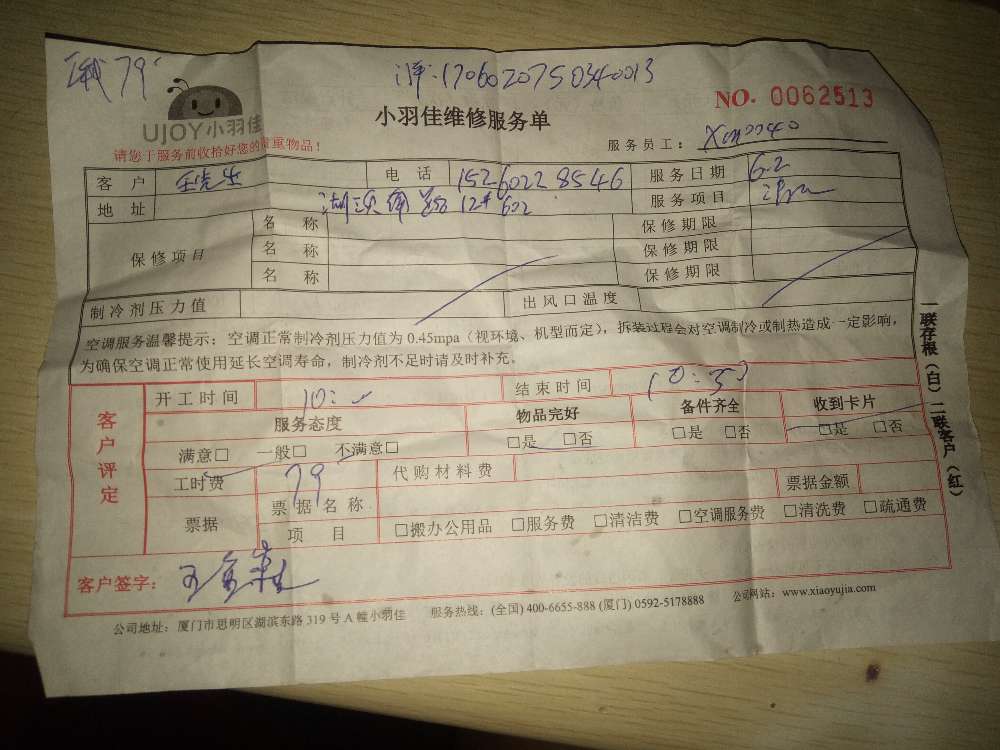 79
170602075034 0013
UJOY小羽佳
小羽佳维修服务单
NO. 0062513
请您于服务前收拾好您的贵重物品！
服务员工：
客 户 电 话 152 6022 8546 服务日期 6.2
地 址 12# 602 服务项目
保修项目 名 称 保修期限
名 称 保修期限
名 称 保修期限
制冷剂压力值 出风口温度
空调服务温馨提示：空调正常制冷剂压力值为 0.45mpa（视环境、机型而定），拆装过程会对空调制冷或制热造成一定影响，
为确保空调正常使用延长空调寿命，制冷剂不足时请及时补充。
一联存根（白）二联客户（红）
客户评定
开工时间 10: 结束时间
服务态度 物品完好 备件齐全 收到卡片
满意□ 一般□ 不满意□ □是 □否 □是 □否 □是 □否
工时费 79 代购材料费
票据 票据名称 票据金额
项 目 □搬办公用品 □服务费 □清洁费 □空调服务费 □清洗费 □疏通费
客户签字：
公司地址：厦门市思明区湖滨东路 319 号 A 幢小羽佳 服务热线：(全国) 400-6655-888 (厦门) 0592-5178888 公司网站：www.xiaoyujia.com